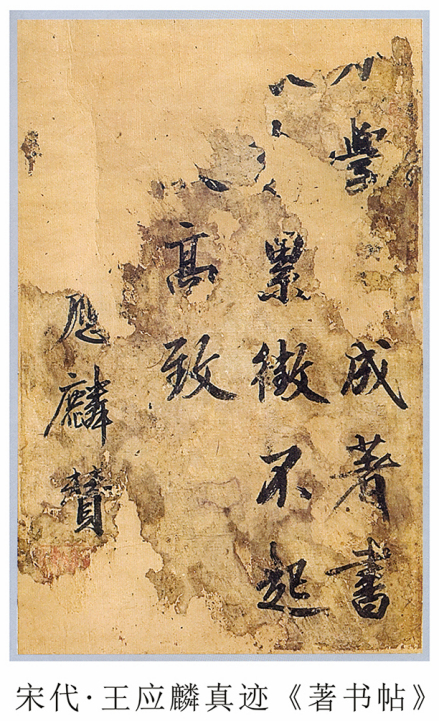 學成著書
累徵不起
高致
應麟贊
宋代·王应麟真迹《著书帖》